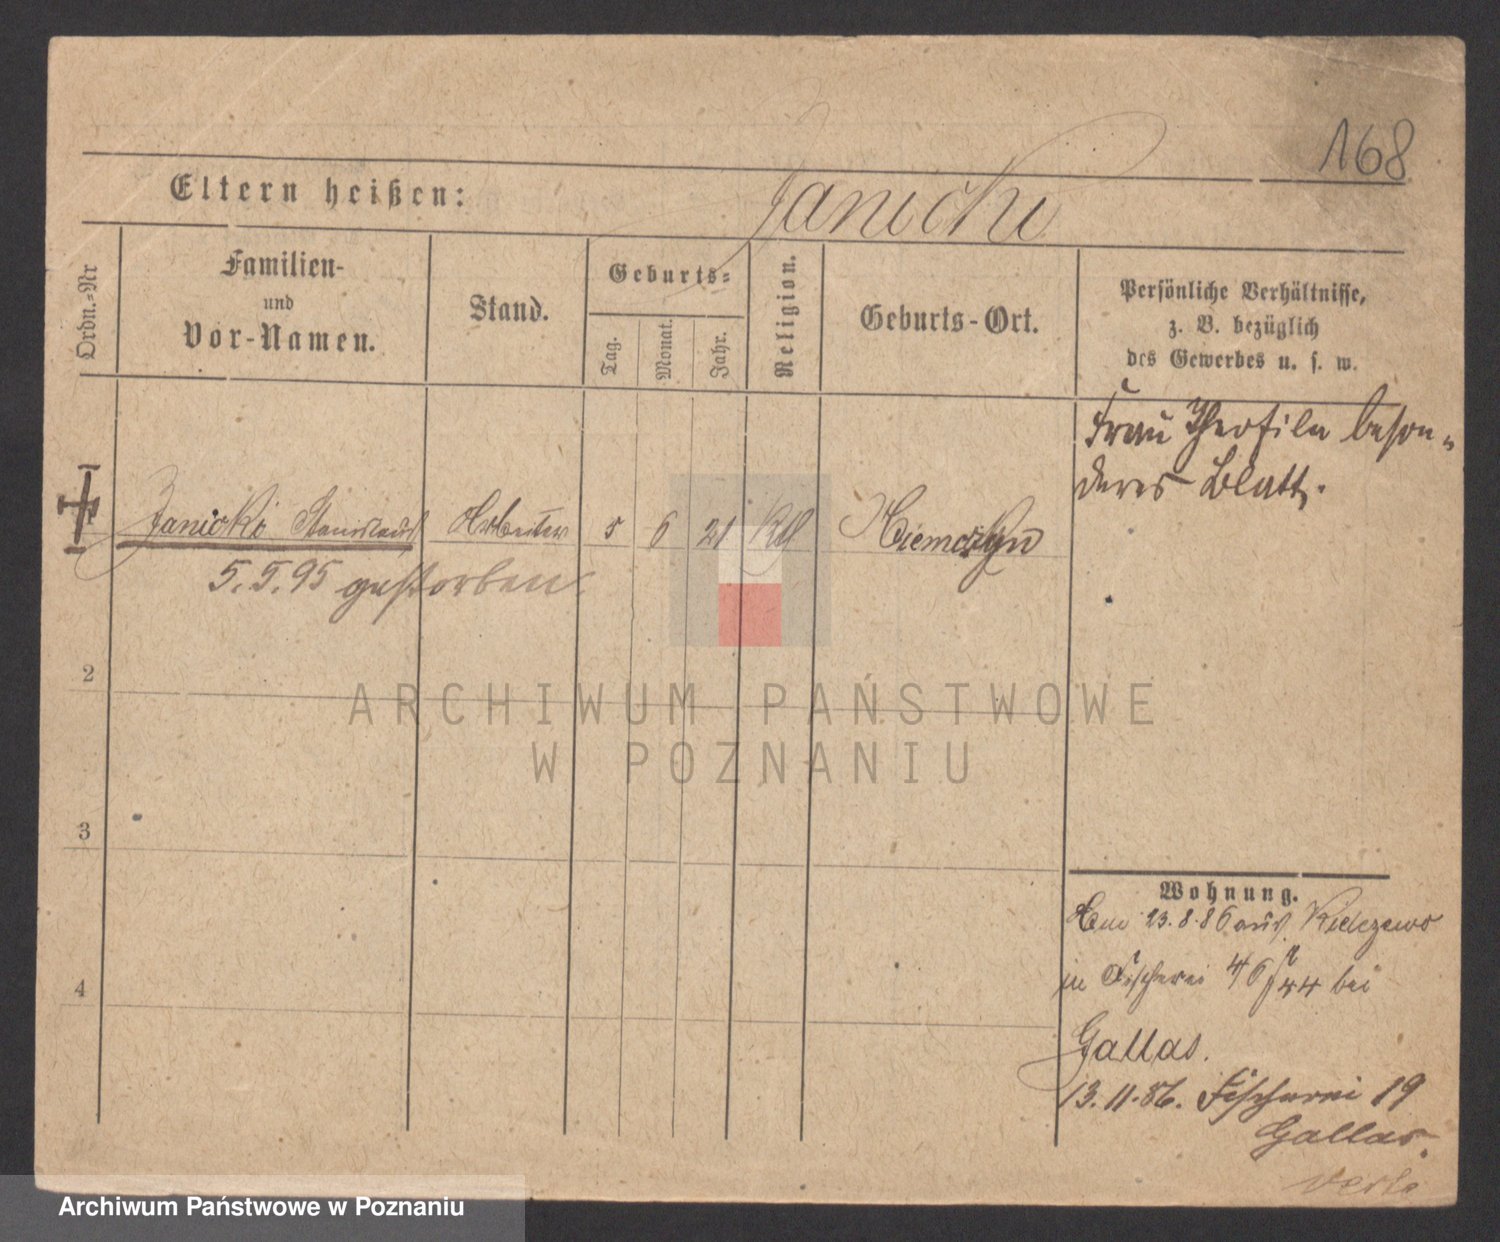 168
Eltern heißen: Janicki
Ordn.-Nr
Familien-
und
Vor-Namen.
Stand.
Geburts-
Tag.
Monat.
Jahr.
Religion.
Geburts-Ort.
Persönliche Verhältnisse,
z. B. bezüglich
des Gewerbes u. s. w.
Frau Theofila beson-
deres Blatt.
Janicki Stanislaus Arbeiter 5 6 21 Kth Niemczyn
5.5.95 gestorben.
2
3
4
Wohnung.
23.8.86 aus
in Fischerei 4/6 bei
Gallas.
13.11.86. Fischerei 19
Gallas.
verte
ARCHIWUM PAŃSTWOWE
W POZNANIU
Archiwum Państwowe w Poznaniu